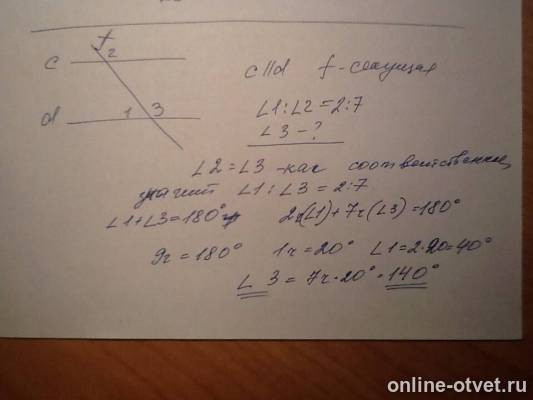 f
c 2
c||d f - секущая
d 1 3
∠1:∠2=2:7
∠3 - ?
∠2=∠3 - как соответственные,
значит ∠1:∠3=2:7
∠1+∠3=180° 2ч(∠1)+7ч(∠3)=180°
9ч=180° 1ч=20° ∠1=2·20=40°
∠3=7ч·20°=140°
online-otvet.ru